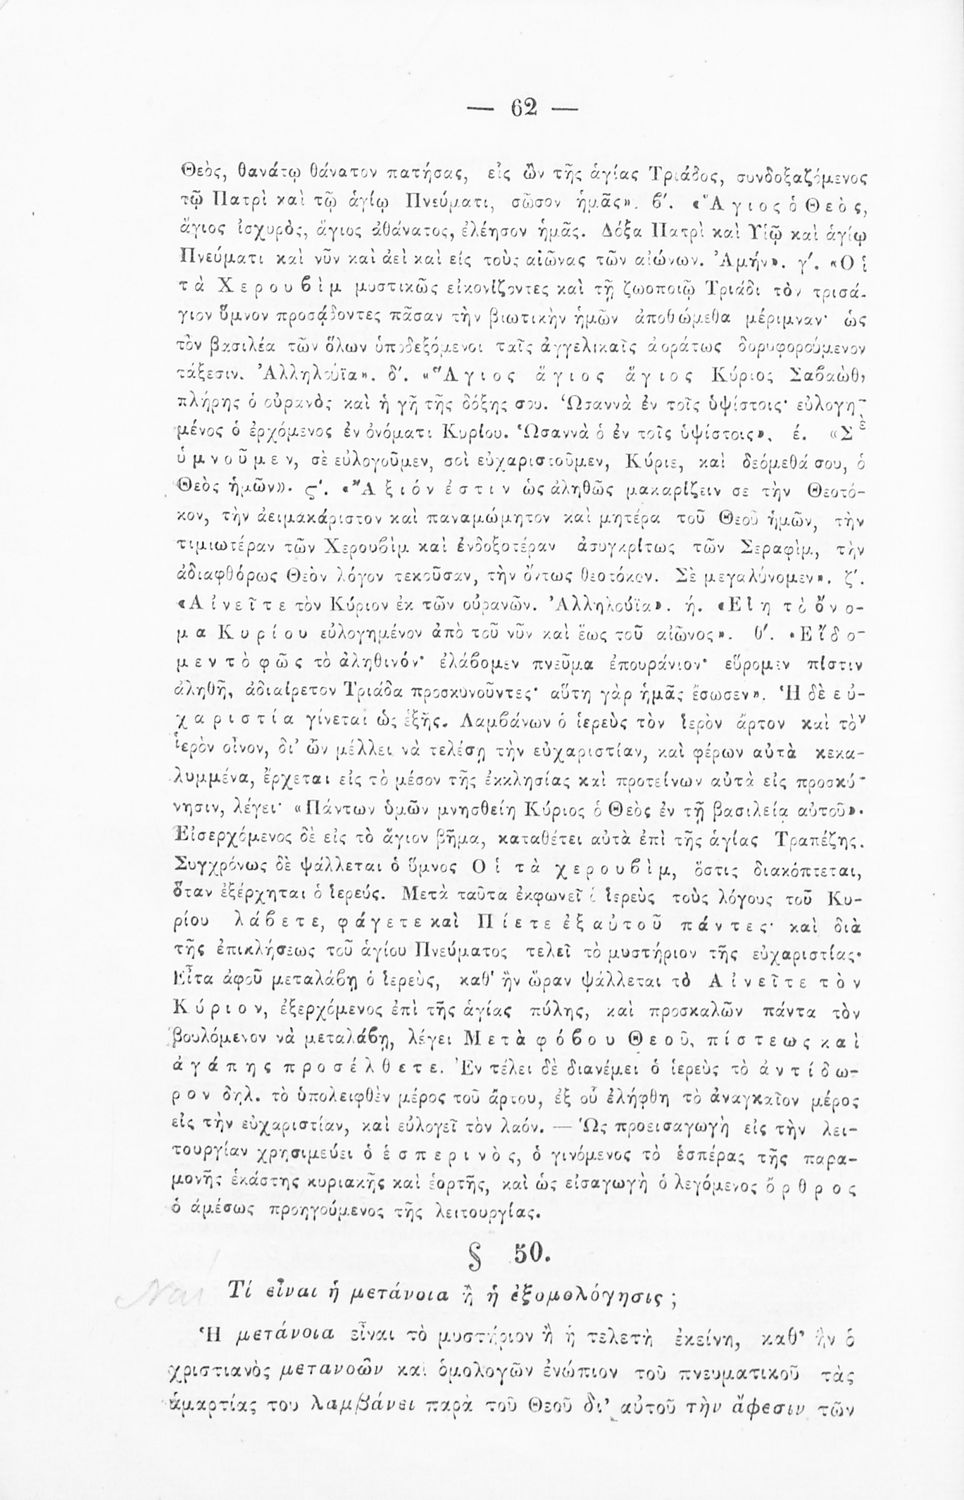 — 62 —
Θεὸς, θανάτῳ θάνατον πατήσας, εἷς ὢν τῆς ἁγίας Τριάδος, συνδοξαζόμενος
τῷ Πατρὶ καὶ τῷ ἁγίῳ Πνεύματι, σῶσον ἡμᾶς». β'. «Ἅγιος ὁ Θεὸς,
ἅγιος ἰσχυρὸς, ἅγιος ἀθάνατος, ἐλέησον ἡμᾶς. Δόξα Πατρὶ καὶ Υἱῷ καὶ ἁγίῳ
Πνεύματι καὶ νῦν καὶ ἀεὶ καὶ εἰς τοὺς αἰῶνας τῶν αἰώνων. Ἀμήν». γ'. «Οἱ
τὰ Χερουβὶμ μυστικῶς εἰκονίζοντες καὶ τῇ ζωοποιῷ Τριάδι τὸν τρισά-
γιον ὕμνον προσᾴδοντες πᾶσαν τὴν βιωτικὴν ἡμῶν ἀποθώμεθα μέριμναν· ὡς
τὸν βασιλέα τῶν ὅλων ὑποδεξόμενοι ταῖς ἀγγελικαῖς ἀοράτως δορυφορούμενον
τάξεσιν. Ἀλληλούϊα». δ'. «Ἅγιος ἅγιος ἅγιος Κύριος Σαβαὼθ,
πλήρης ὁ οὐρανὸς καὶ ἡ γῆ τῆς δόξης σου. Ὡσαννὰ ἐν τοῖς ὑψίστοις· εὐλογη-
μένος ὁ ἐρχόμενος ἐν ὀνόματι Κυρίου. Ὡσαννὰ ὁ ἐν τοῖς ὑψίστοις». έ. «Σὲ
ὑμνοῦμεν, σὲ εὐλογοῦμεν, σοὶ εὐχαριστοῦμεν, Κύριε, καὶ δεόμεθά σου, ὁ
Θεὸς ἡμῶν». ϛ'. «Ἄξιόν ἐστιν ὡς ἀληθῶς μακαρίζειν σε τὴν Θεοτό-
κον, τὴν ἀειμακάριστον καὶ παναμώμητον καὶ μητέρα τοῦ Θεοῦ ἡμῶν, τὴν
τιμιωτέραν τῶν Χερουβὶμ καὶ ἐνδοξοτέραν ἀσυγκρίτως τῶν Σεραφὶμ, τὴν
ἀδιαφθόρως Θεὸν λόγον τεκοῦσαν, τὴν ὄντως θεοτόκον. Σὲ μεγαλύνομεν». ζ'.
«Αἰνεῖτε τὸν Κύριον ἐκ τῶν οὐρανῶν. Ἀλληλούϊα». ή. «Εἴη τὸ ὄνο-
μα Κυρίου εὐλογημένον ἀπὸ τοῦ νῦν καὶ ἕως τοῦ αἰῶνος». θ'. «Εἴδο-
μεν τὸ φῶς τὸ ἀληθινόν· ἐλάβομεν πνεῦμα ἐπουράνιον· εὕρομεν πίστιν
ἀληθῆ, ἀδιαίρετον Τριάδα προσκυνοῦντες· αὕτη γὰρ ἡμᾶς ἔσωσεν». Ἡ δὲ εὐ-
χαριστία γίνεται ὡς ἑξῆς. Λαμβάνων ὁ ἱερεὺς τὸν ἱερὸν ἄρτον καὶ τὸν
ἱερὸν οἶνον, δι' ὧν μέλλει νὰ τελέσῃ τὴν εὐχαριστίαν, καὶ φέρων αὐτὰ κεκα-
λυμμένα, ἔρχεται εἰς τὸ μέσον τῆς ἐκκλησίας καὶ προτείνων αὐτὰ εἰς προσκύ-
νησιν, λέγει· «Πάντων ὑμῶν μνησθείη Κύριος ὁ Θεὸς ἐν τῇ βασιλείᾳ αὐτοῦ».
Εἰσερχόμενος δὲ εἰς τὸ ἅγιον βῆμα, καταθέτει αὐτὰ ἐπὶ τῆς ἁγίας Τραπέζης.
Συγχρόνως δὲ ψάλλεται ὁ ὕμνος Οἱ τὰ χερουβὶμ, ὅστις διακόπτεται,
ὅταν ἐξέρχηται ὁ ἱερεύς. Μετὰ ταῦτα ἐκφωνεῖ ὁ ἱερεὺς τοὺς λόγους τοῦ Κυ-
ρίου λάβετε, φάγετε καὶ Πίετε ἐξ αὐτοῦ πάντες· καὶ διὰ
τῆς ἐπικλήσεως τοῦ ἁγίου Πνεύματος τελεῖ τὸ μυστήριον τῆς εὐχαριστίας·
Εἶτα ἀφοῦ μεταλάβῃ ὁ ἱερεὺς, καθ' ἣν ὥραν ψάλλεται τὸ Αἰνεῖτε τὸν
Κύριον, ἐξερχόμενος ἐπὶ τῆς ἁγίας πύλης, καὶ προσκαλῶν πάντα τὸν
βουλόμενον νὰ μεταλάβῃ, λέγει Μετὰ φόβου Θεοῦ, πίστεως καὶ
ἀγάπης προσέλθετε. Ἐν τέλει δὲ διανέμει ὁ ἱερεὺς τὸ ἀντίδω-
ρον δηλ. τὸ ὑπολειφθὲν μέρος τοῦ ἄρτου, ἐξ οὗ ἐλήφθη τὸ ἀναγκαῖον μέρος
εἰς τὴν εὐχαριστίαν, καὶ εὐλογεῖ τὸν λαόν. — Ὡς προεισαγωγὴ εἰς τὴν λει-
τουργίαν χρησιμεύει ὁ ἑσπερινὸς, ὁ γινόμενος τὸ ἑσπέρας τῆς παρα-
μονῆς ἑκάστης κυριακῆς καὶ ἑορτῆς, καὶ ὡς εἰσαγωγὴ ὁ λεγόμενος ὄρθρος
ὁ ἀμέσως προηγούμενος τῆς λειτουργίας.
§ 50.
Τί εἶναι ἡ μετάνοια ἢ ἡ ἐξομολόγησις ;
Ἡ μετάνοια εἶναι τὸ μυστήριον ἢ ἡ τελετὴ ἐκείνη, καθ' ἣν ὁ
χριστιανὸς μετανοῶν καὶ ὁμολογῶν ἐνώπιον τοῦ πνευματικοῦ τὰς
ἁμαρτίας του λαμβάνει παρὰ τοῦ Θεοῦ δι' αὐτοῦ τὴν ἄφεσιν τῶν